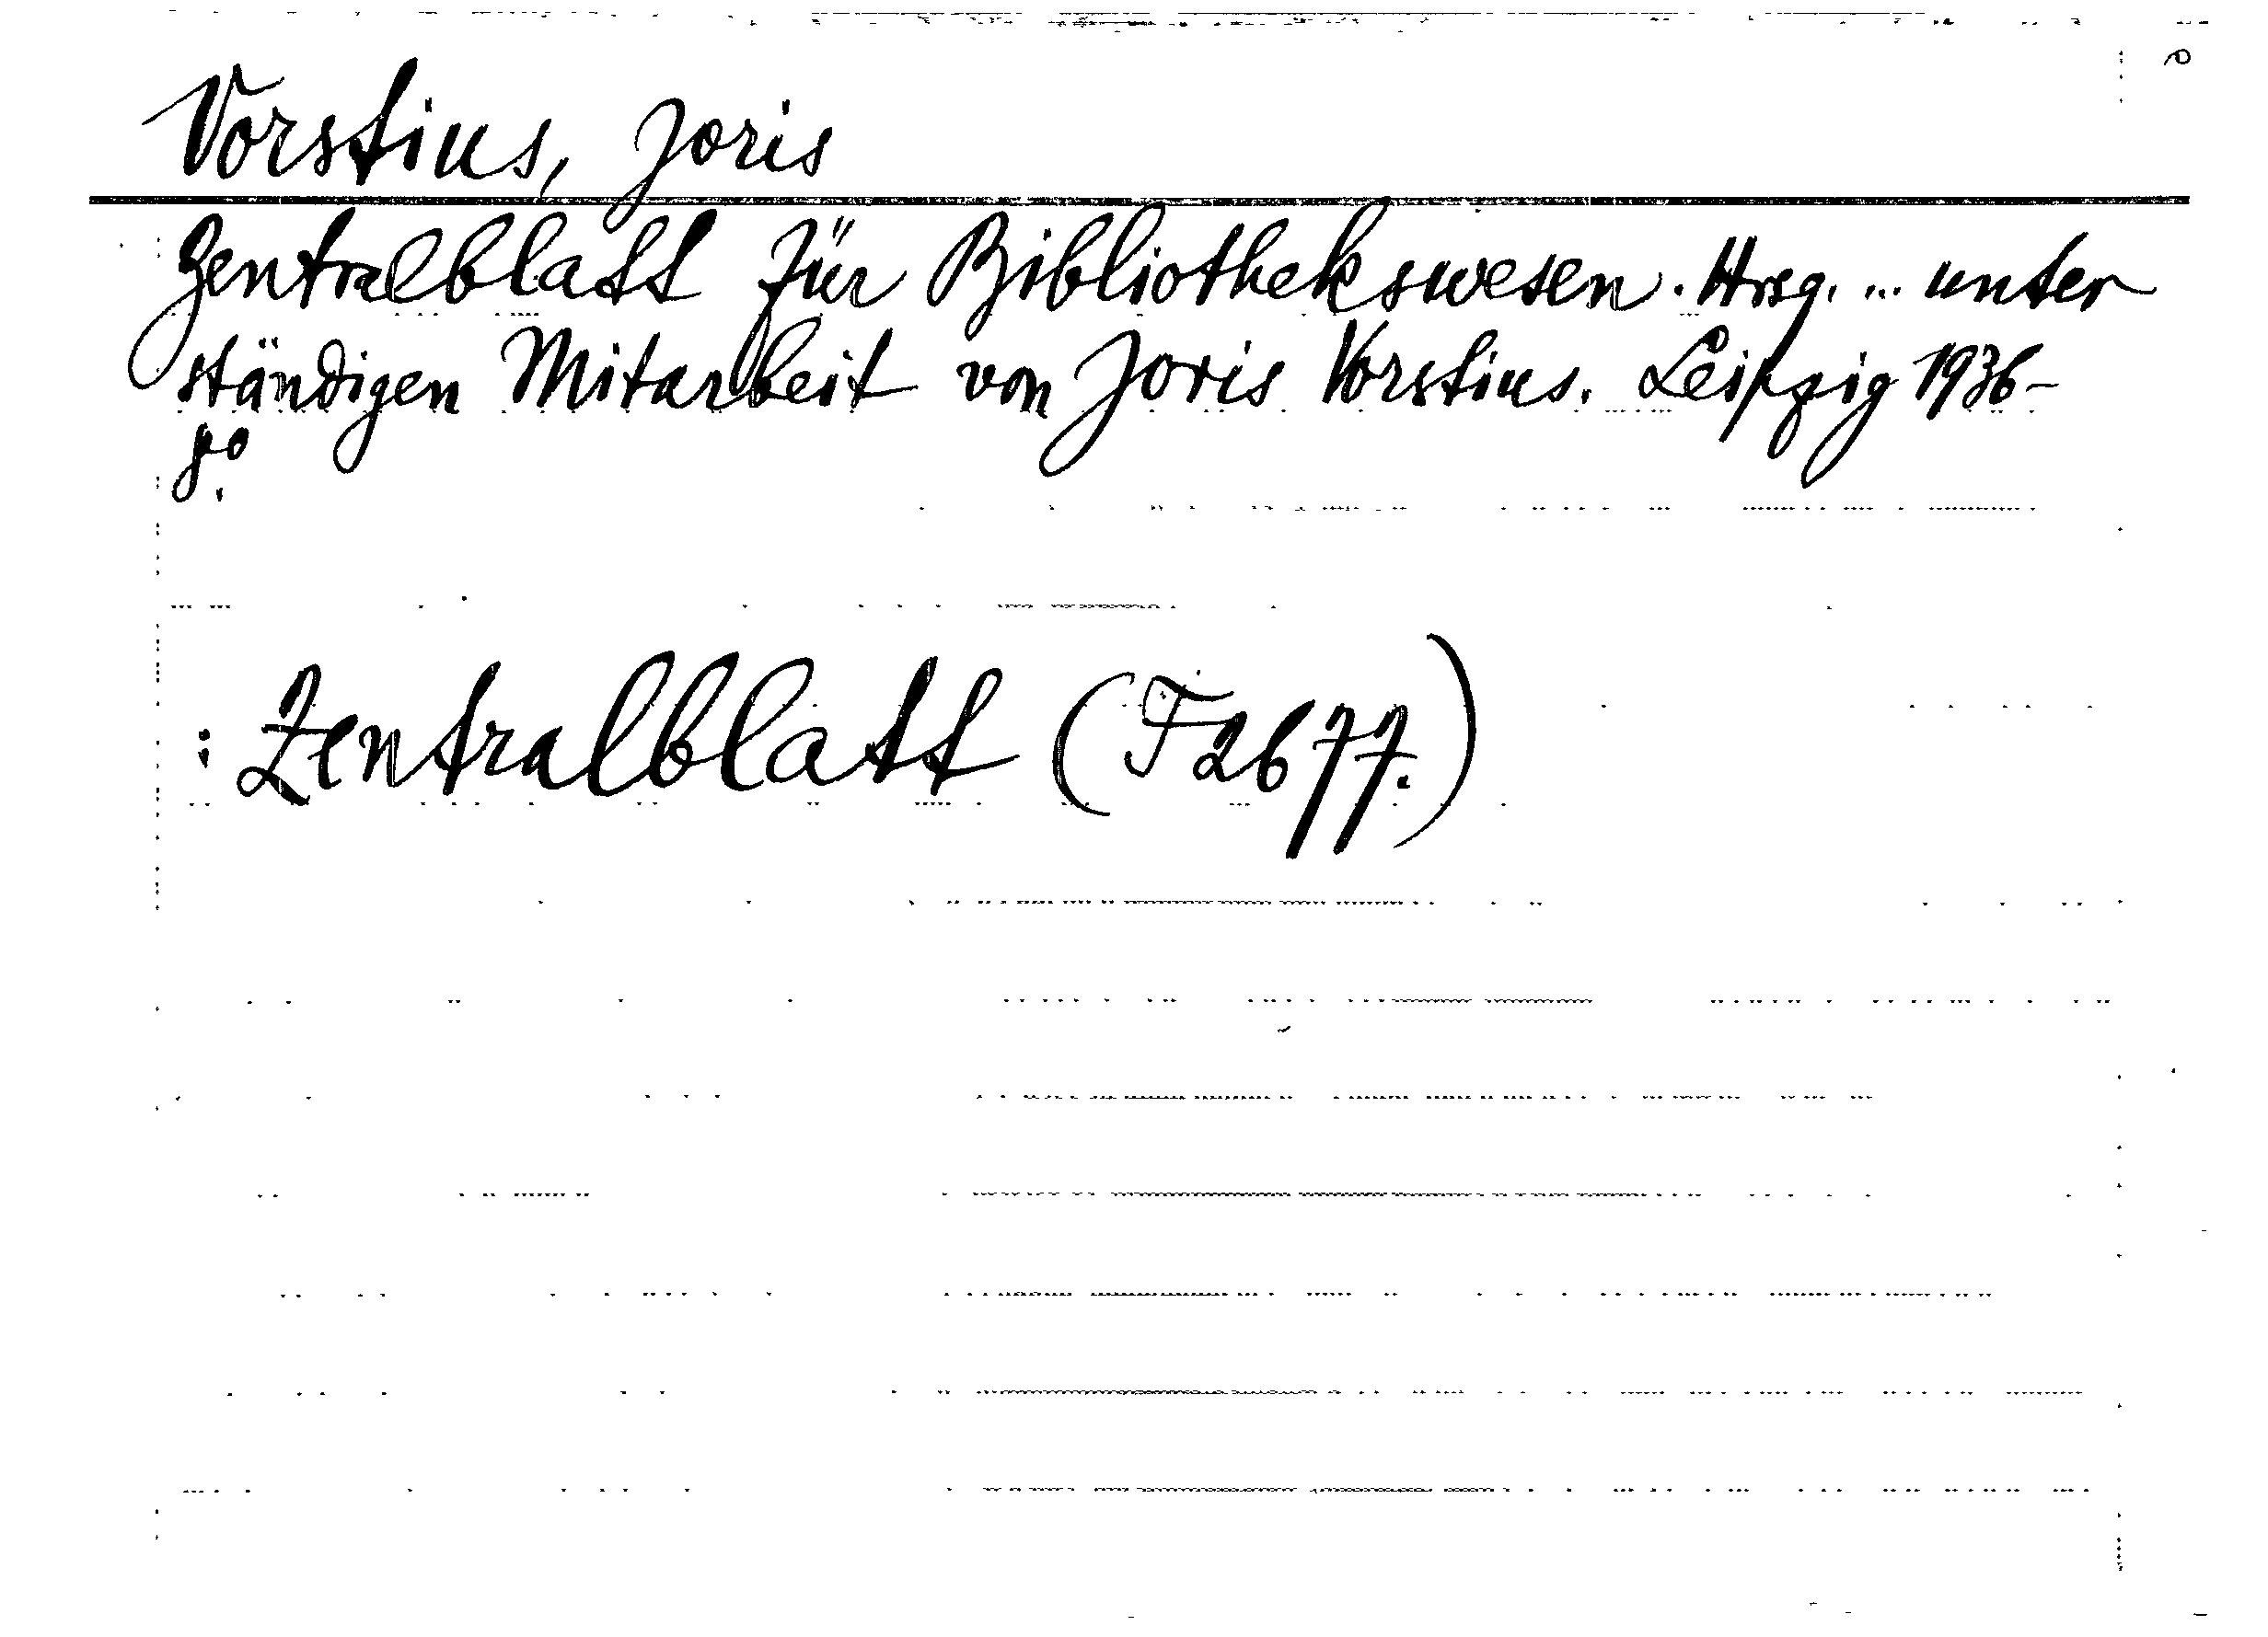 Vorstius, Joris
Zentralblatt für Bibliothekswesen. Hrsg. ... unter
ständigen Mitarbeit von Joris Vorstius. Leipzig 1936-
8°.
: Zentralblatt (F2677.)